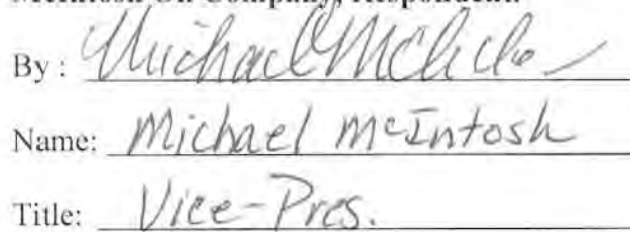 McIntosh Oil Company, Respondent.
By : Michael
Name: Michael McIntosh
Title: Vice-Pres.